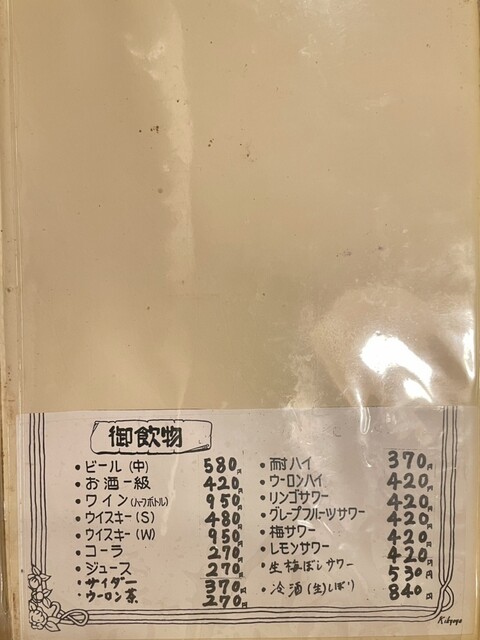 御飲物
・ビール(中) 580円
・お酒一級 420円
・ワイン(ハーフボトル) 950円
・ウイスキー(S) 480円
・ウイスキー(W) 950円
・コーラ 270円
・ジュース 270円
・サイダー 370円
・ウーロン茶 270円
・酎ハイ 370円
・ウーロンハイ 420円
・リンゴサワー 420円
・グレープフルーツサワー 420円
・梅サワー 420円
・レモンサワー 420円
・生梅ぼしサワー 530円
・冷酒(生)しぼり 840円